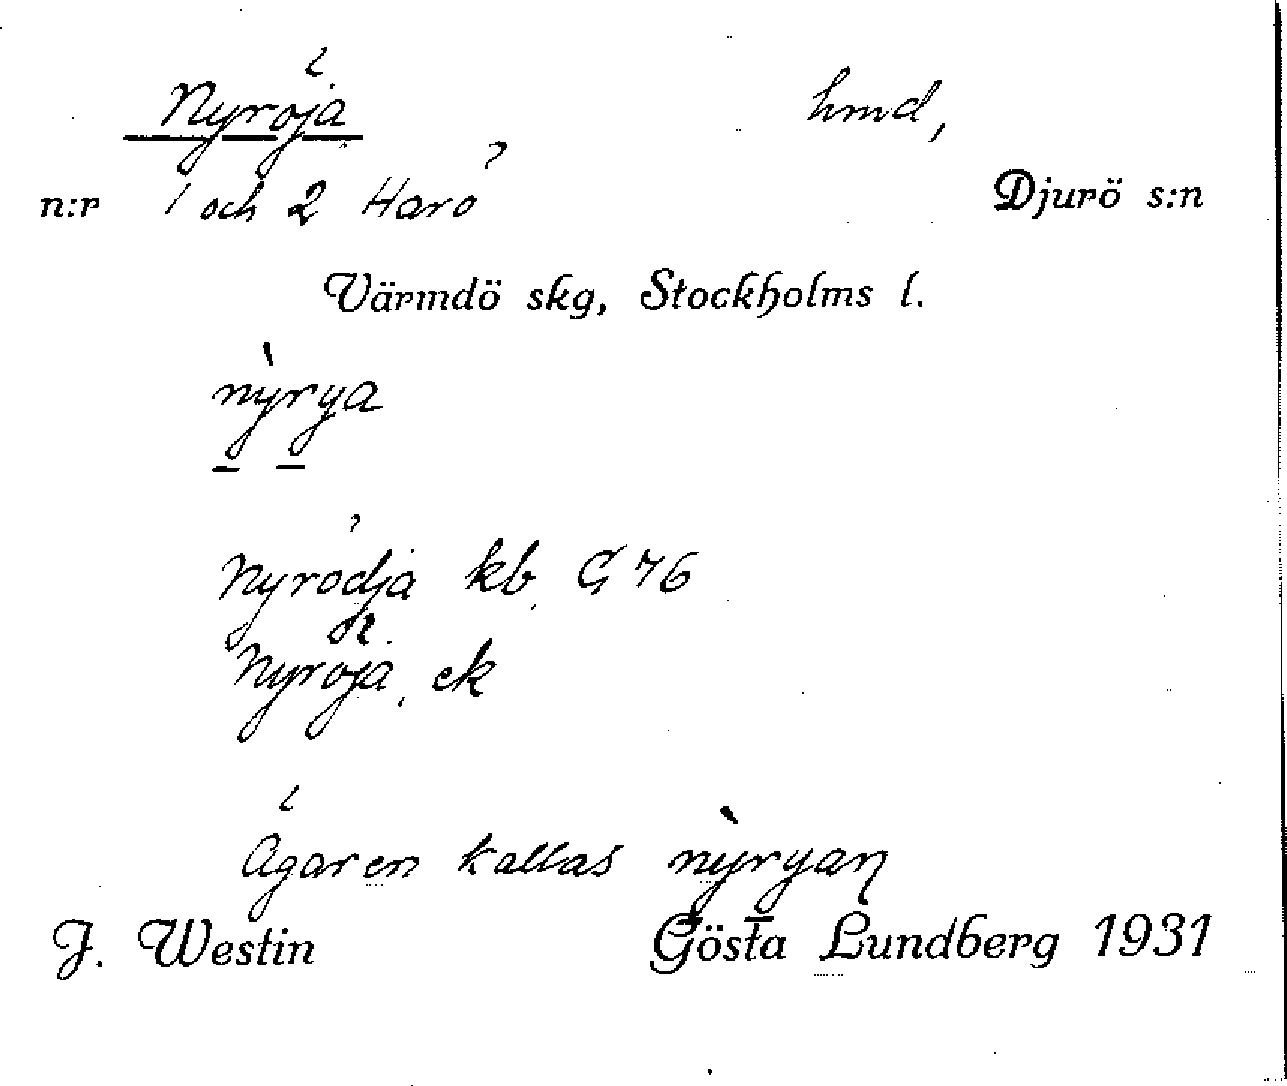 Nyröja hmd,
n:r 1 och 2 Harö Djurö s:n
Värmdö skg, Stockholms l.
nỳrya
Nyrödja kb. G 76
Nyröja, ek
Ägaren kallas nỳryaɳ
J. Westin Gösta Lundberg 1931